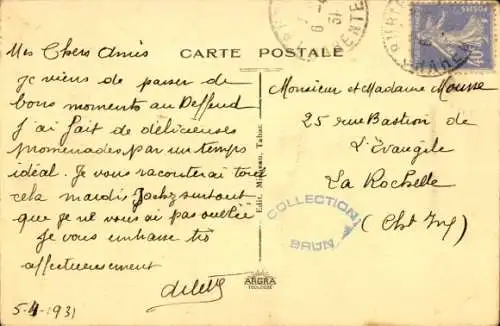 CARTE POSTALE
Mes Chers Amis
je viens de passer de
bons moments au Deffend
J'ai fait de délicieuses
promenades par un temps
idéal. Je vous raconterai tout
cela mardi. Sachez surtout
que je ne vous ai pas oublié
Je vous embrasse très
affectueusement
5-4-1931
Edit. Tabac
ARGRA
Monsieur et Madame Mousse
25 rue Bastion de
L'Évangile
La Rochelle
(Cht Inf)
COLLECTION
BRUN
POSTES
6 -4
31